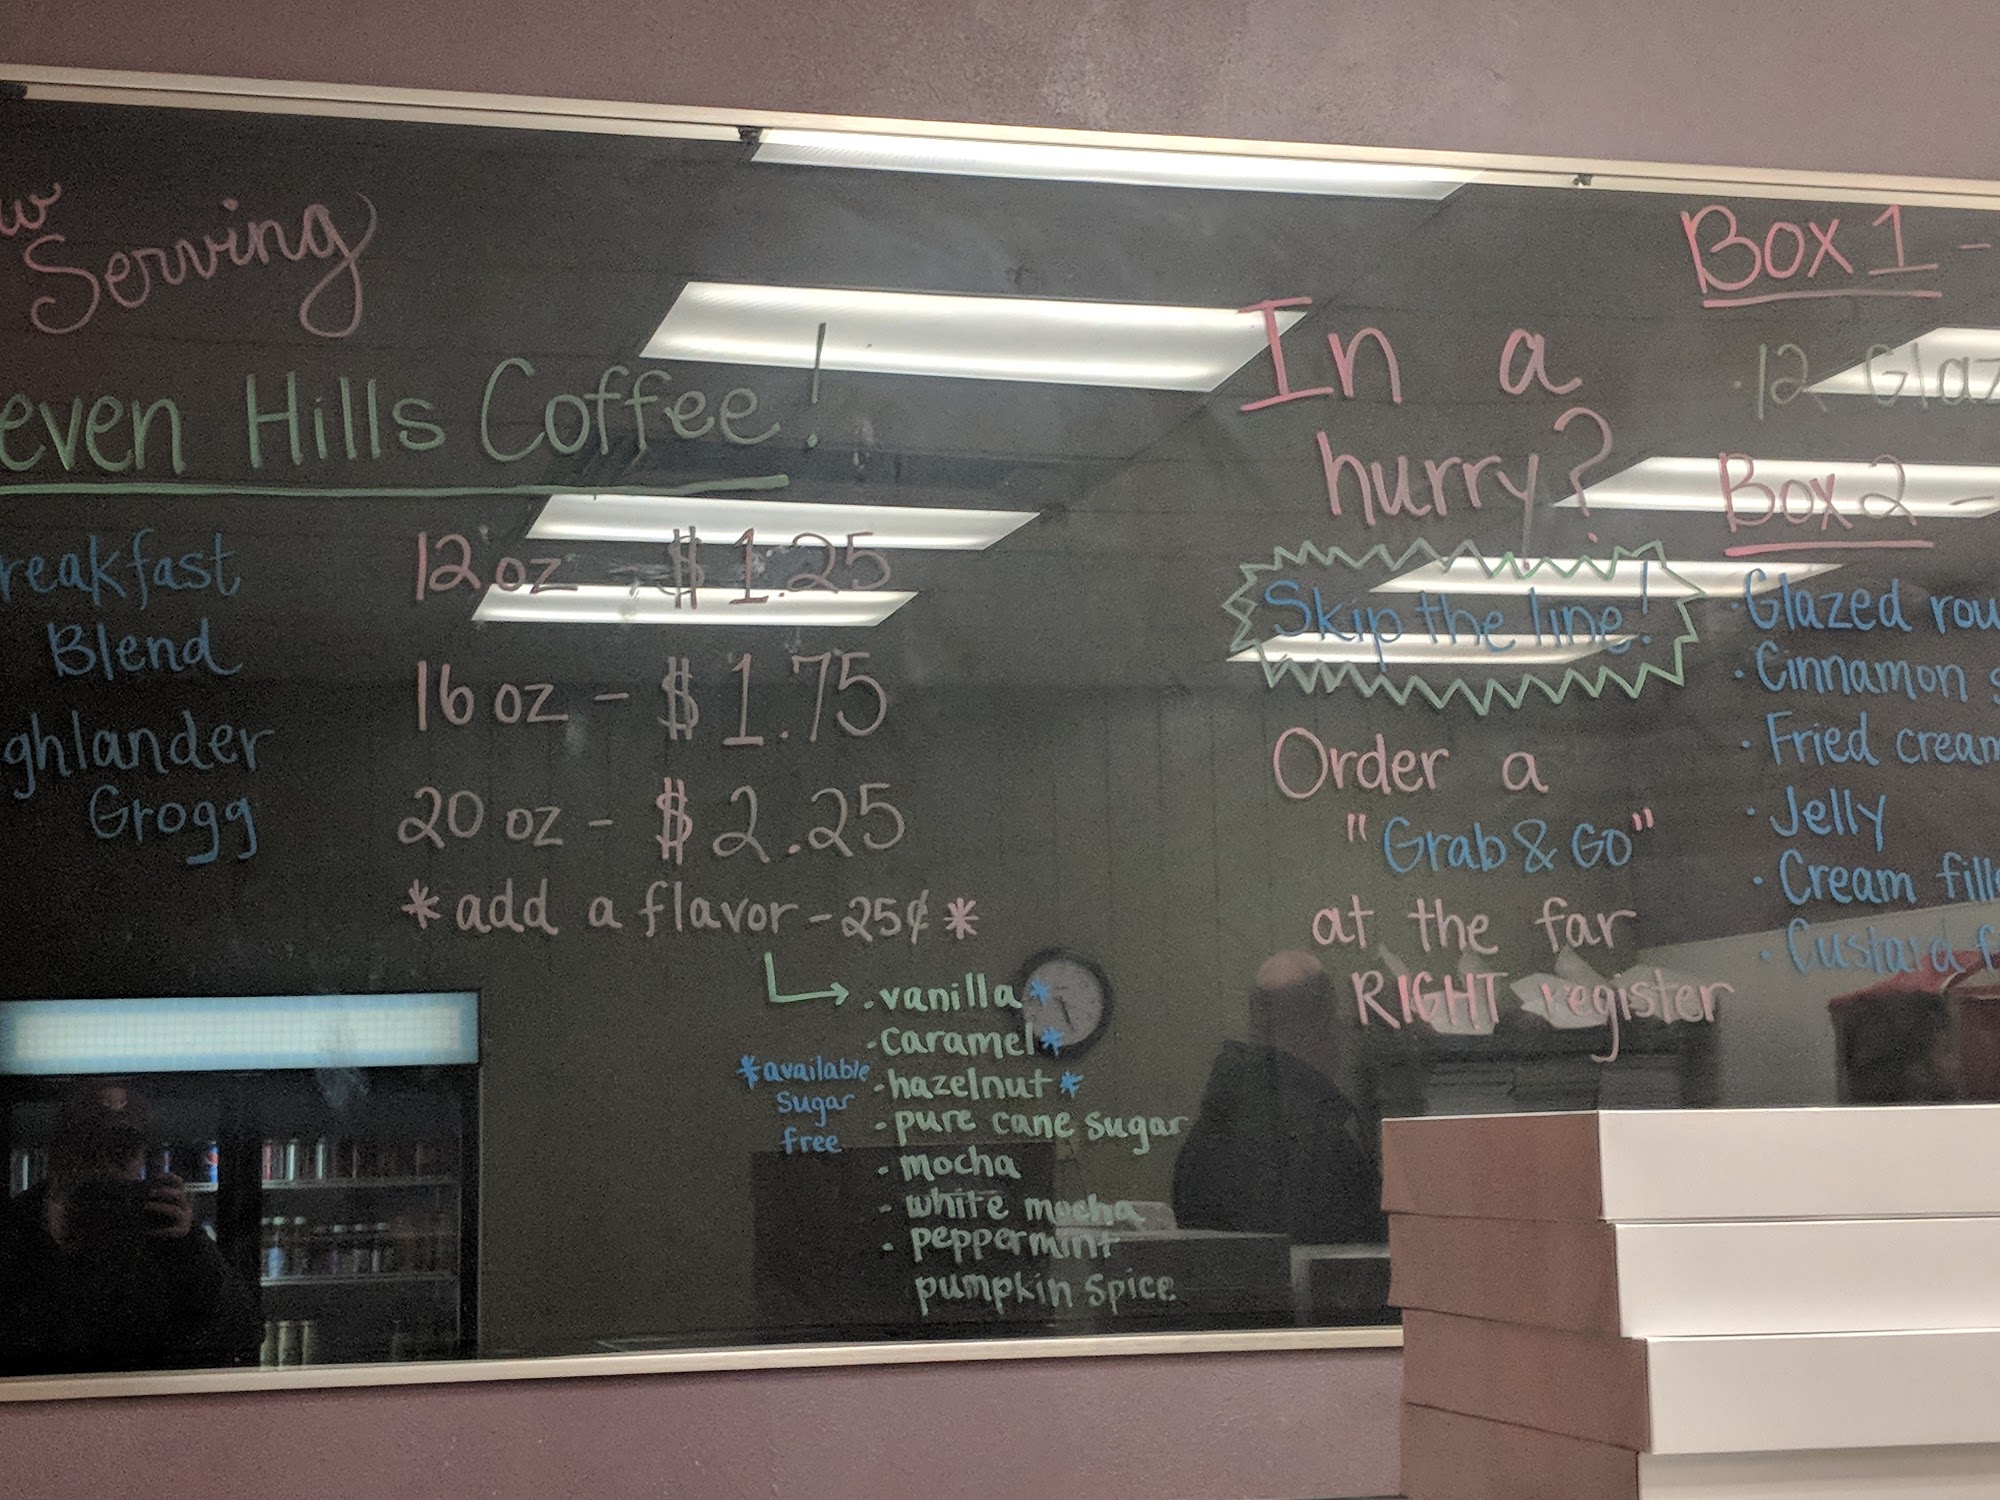 Serving
even Hills Coffee!
reakfast
Blend
ghlander
Grogg
12 oz - $1.25
16 oz - $1.75
20 oz - $2.25
*add a flavor - 25¢*
· vanilla*
· caramel*
· hazelnut*
· pure cane sugar
· mocha
- white mocha
· peppermint
pumpkin spice
*available
sugar
free
In a
hurry?
Skip the line!
Order a
"Grab & Go"
at the far
RIGHT register
Box 1 -
· 12 Glaz
Box 2 -
· Glazed rou
· Cinnamon s
· Fried cream
· Jelly
· Cream fill
· Custard f